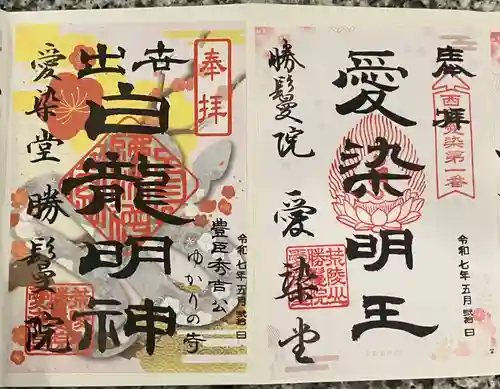 奉拝
西国愛染第一番
令和七年五月弐拾日
愛染明王
勝鬘院 愛染堂
荒陵山
勝鬘院
奉拝
令和七年五月弐拾日
豊臣秀吉公
ゆかりの寺
出世
白龍明神
愛染堂 勝鬘院